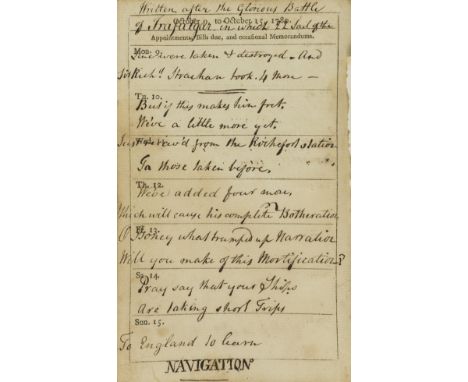 Written after the Glorious Battle
October 9, to October 15, 1789.
of Trafalgar in which 22 Sail of the
Appointments, Bills due, and occasional Memorandums.
Mon. 9.
Line were taken & destroyed - And
Sir Richd. Strachan took 4 more -
Tu. 10.
But if this makes him fret.
We've a little more yet.
Just reciev'd from the Rochefort station
To those taken before,
Th. 12.
We've added four more,
Which will cause his complete Botheration
Fr. 13.
O Boney what trumped up Narration
Will you make of this Mortification?
Sa. 14.
Pray say that your Ships
Are taking short Trips
Sun. 15.
To England to learn
NAVIGATION